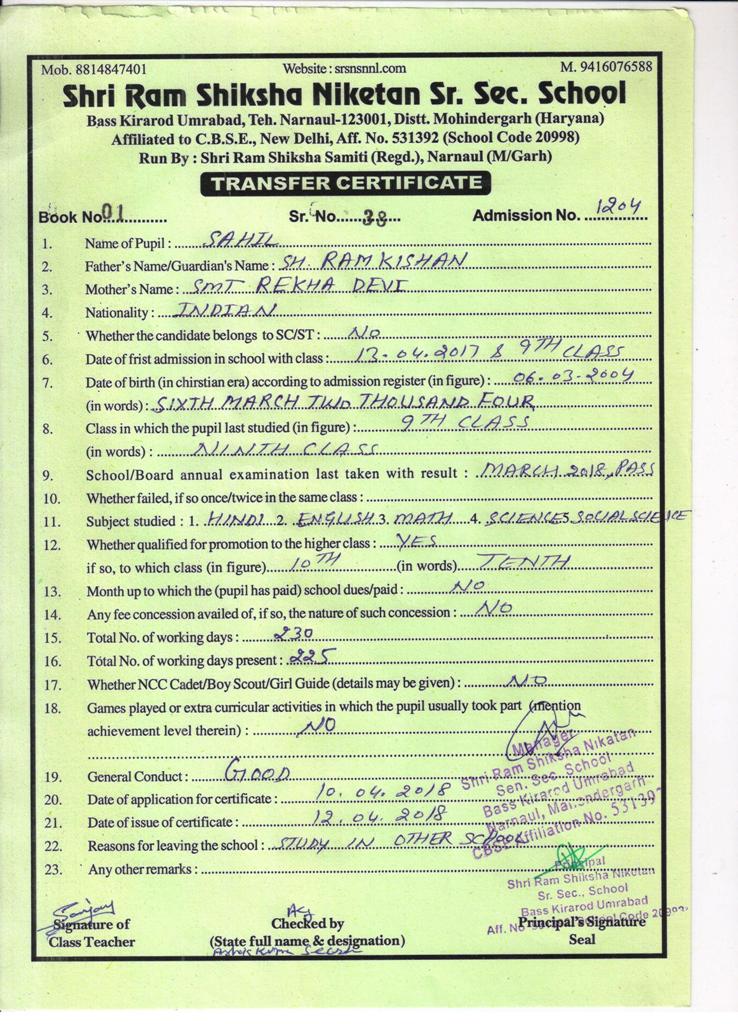 Mob. 8814847401 Website : srsnsnnl.com M. 9416076588
Shri Ram Shiksha Niketan Sr. Sec. School
Bass Kirarod Umrabad, Teh. Narnaul-123001, Distt. Mohindergarh (Haryana)
Affiliated to C.B.S.E., New Delhi, Aff. No. 531392 (School Code 20998)
Run By : Shri Ram Shiksha Samiti (Regd.), Narnaul (M/Garh)
TRANSFER CERTIFICATE
Book No. 01 Sr. No. 38 Admission No. 1204
1. Name of Pupil : SAHIL
2. Father's Name/Guardian's Name : SH. RAMKISHAN
3. Mother's Name : SMT REKHA DEVI
4. Nationality : INDIAN
5. Whether the candidate belongs to SC/ST : NO
6. Date of frist admission in school with class : 13-04-2017 & 9TH CLASS
7. Date of birth (in chirstian era) according to admission register (in figure) : 06-03-2004
(in words) : SIXTH MARCH TWO THOUSAND FOUR
8. Class in which the pupil last studied (in figure) : 9TH CLASS
(in words) : NINTH CLASS
9. School/Board annual examination last taken with result : MARCH 2018, PASS
10. Whether failed, if so once/twice in the same class :
11. Subject studied : 1. HINDI 2. ENGLISH 3. MATH 4. SCIENCE 5. SOCIAL SCIENCE
12. Whether qualified for promotion to the higher class : YES
if so, to which class (in figure) 10TH (in words) TENTH
13. Month up to which the (pupil has paid) school dues/paid : NO
14. Any fee concession availed of, if so, the nature of such concession : NO
15. Total No. of working days : 230
16. Total No. of working days present : 225
17. Whether NCC Cadet/Boy Scout/Girl Guide (details may be given) : NO
18. Games played or extra curricular activities in which the pupil usually took part (mention
achievement level therein) : NO
Manager
Shri Ram Shiksha Nikatan
Sen. Sec. School
Bass Kirarod Umrabad
Narnaul, Mahendergarh
CBSE Affiliation No. 531392
19. General Conduct : GOOD
20. Date of application for certificate : 10.04.2018
21. Date of issue of certificate : 12.04.2018
22. Reasons for leaving the school : STUDY IN OTHER SCHOOL
23. Any other remarks :
Principal
Shri Ram Shiksha Niketan
Sr. Sec., School
Bass Kirarod Umrabad
Aff. No Code
Sanjay
Signature of Checked by Principal's Signature
Class Teacher (State full name & designation) Seal